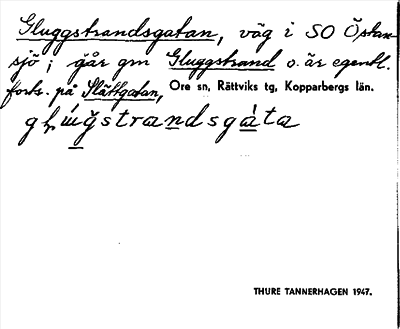 Gluggstrandsgatan, väg i SO Östan-
sjö; går gm Gluggstrand o. är egentl.
forts. på Slättgatan, Ore sn, Rättviks tg, Kopparbergs län.
glúgstrandsgáta
THURE TANNERHAGEN 1947.